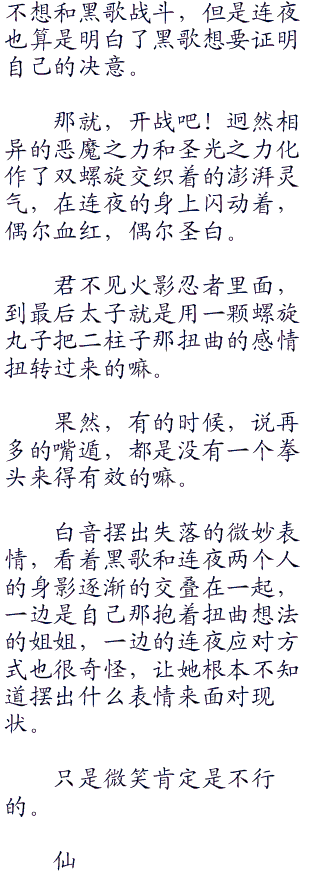 不想和黑歌战斗，但是连夜
也算是明白了黑歌想要证明
自己的决意。
那就，开战吧！迥然相
异的恶魔之力和圣光之力化
作了双螺旋交织着的澎湃灵
气，在连夜的身上闪动着，
偶尔血红，偶尔圣白。
君不见火影忍者里面，
到最后太子就是用一颗螺旋
丸子把二柱子那扭曲的感情
扭转过来的嘛。
果然，有的时候，说再
多的嘴遁，都是没有一个拳
头来得有效的嘛。
白音摆出失落的微妙表
情，看着黑歌和连夜两个人
的身影逐渐的交叠在一起，
一边是自己那抱着扭曲想法
的姐姐，一边的连夜应对方
式也很奇怪，让她根本不知
道摆出什么表情来面对现
状。
只是微笑肯定是不行
的。
仙